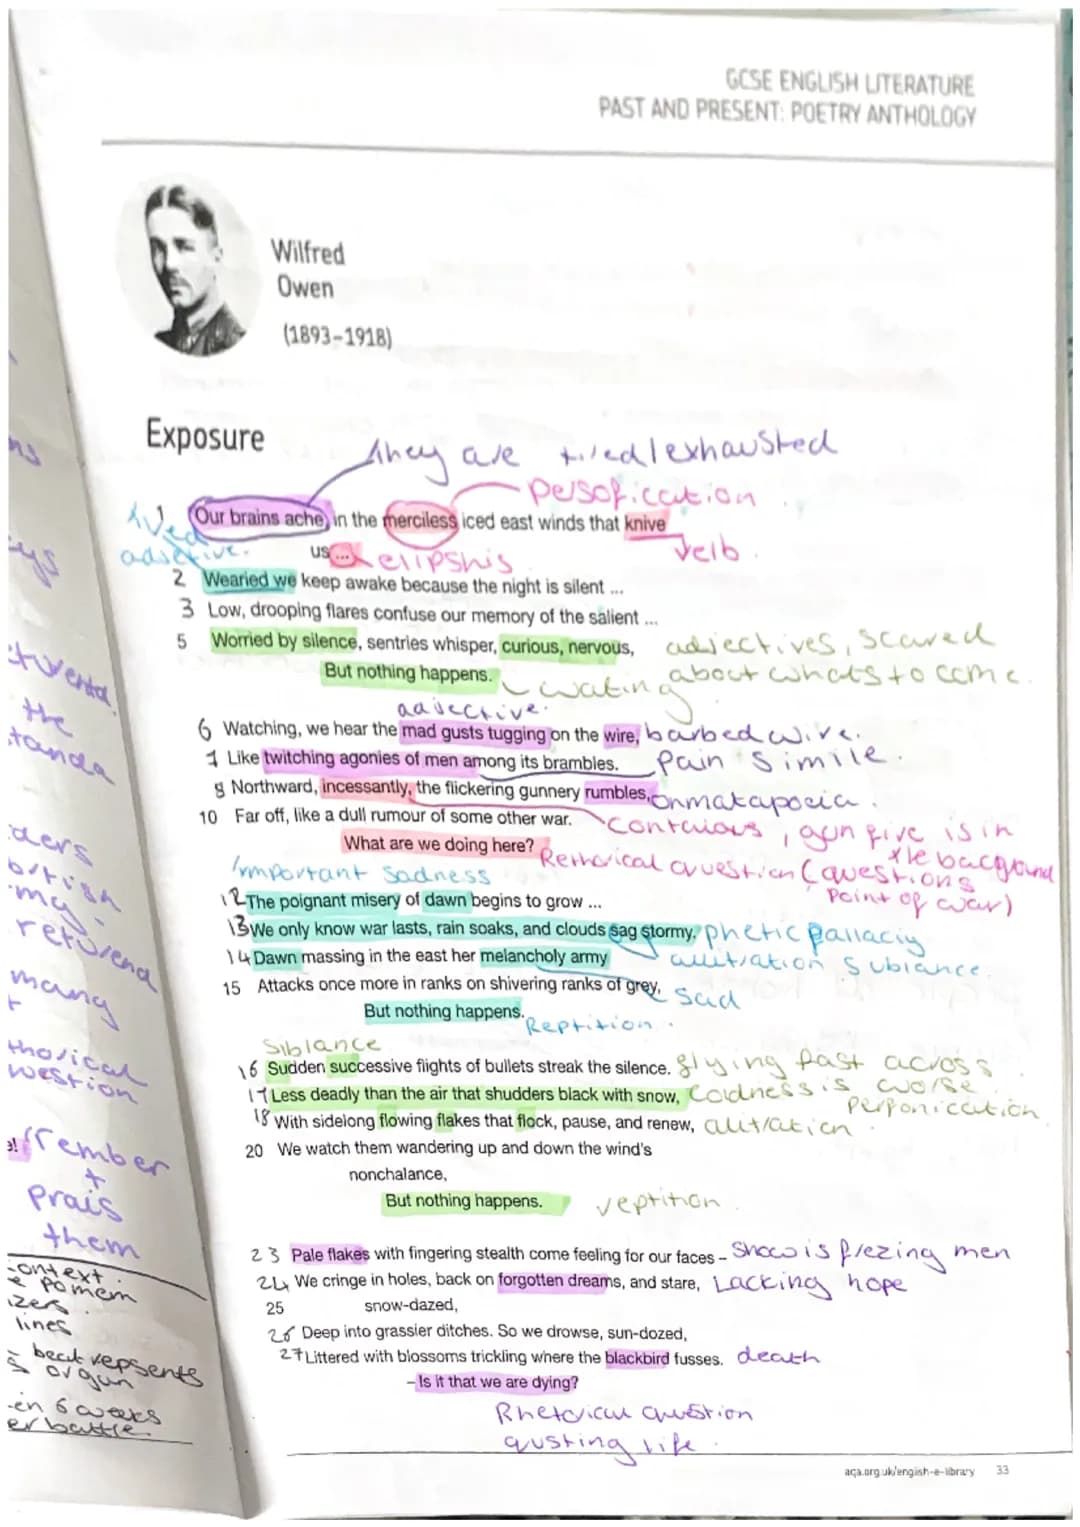 GCSE ENGLISH LITERATURE
PAST AND PRESENT: POETRY ANTHOLOGY
Wilfred
Owen
(1893–1918)
Exposure
they are tired/exhausted
persofication
1 Our brains ache, in the merciless iced east winds that knive
us ...
tired
adjective.
elipshis
verb.
2 Wearied we keep awake because the night is silent ...
3 Low, drooping flares confuse our memory of the salient ...
5 Worried by silence, sentries whisper, curious, nervous,
adjectives, scared
about whats to come.
But nothing happens.
wating
adjective.
6 Watching, we hear the mad gusts tugging on the wire, barbed wire.
7 Like twitching agonies of men among its brambles. Pain simile.
8 Northward, incessantly, the flickering gunnery rumbles, onmatapoeia.
10 Far off, like a dull rumour of some other war.
contuious, gun fire is in
the bacground
What are we doing here? Rethorical question (questions
point of war)
important sadness
12 The poignant misery of dawn begins to grow ...
13 We only know war lasts, rain soaks, and clouds sag stormy. phetic fallaciy
allitration subiance.
14 Dawn massing in the east her melancholy army
15 Attacks once more in ranks on shivering ranks of grey, sad
But nothing happens.
Reptition.
Siblance
16 Sudden successive flights of bullets streak the silence. flying past across
17 Less deadly than the air that shudders black with snow, Coldness is worse
personiccution
18 With sidelong flowing flakes that flock, pause, and renew, allitration.
20 We watch them wandering up and down the wind's
nonchalance,
But nothing happens. reptition
23 Pale flakes with fingering stealth come feeling for our faces – Snow is frezing men
24 We cringe in holes, back on forgotten dreams, and stare, Lacking hope
25 snow-dazed,
26 Deep into grassier ditches. So we drowse, sun-dozed,
27 Littered with blossoms trickling where the blackbird fusses. death
– Is it that we are dying?
Rhetorical question
qusting life.
aqa.org.uk/english-e-library 33
the
many
rember
+
prais
them
context.
pomem
lines
beat repsents
orgun
en 6 weeks
er battle.